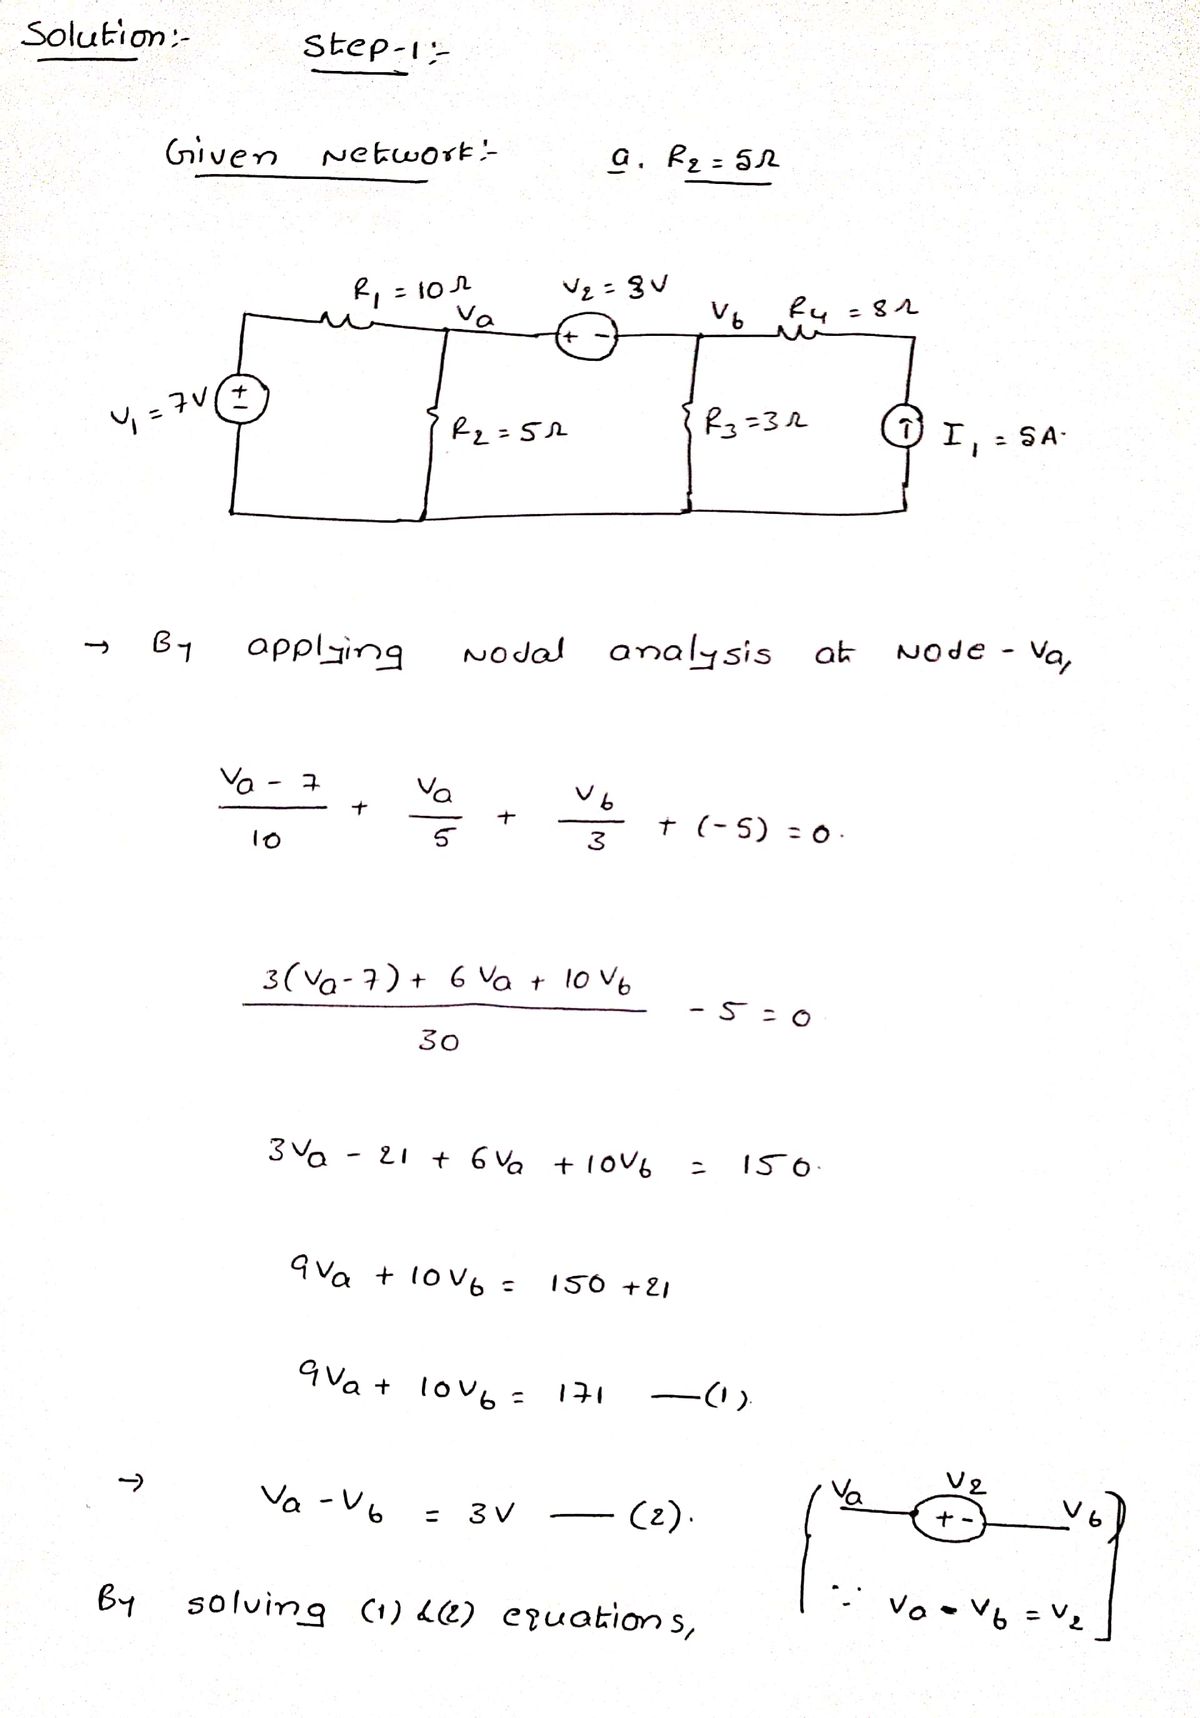 Solution:-
Step-1:-
Given Network:- a. R2 = 5Ω
R1 = 10Ω V2 = 3V
Va Vb R4 = 8Ω
V1 = 7V + - + -
R2 = 5Ω R3 = 3Ω ↑ I1 = 5A.
→ By applying Nodal analysis at Node - Va,
(Va - 7)/10 + Va/5 + Vb/3 + (-5) = 0.
(3(Va-7) + 6Va + 10Vb)/30 - 5 = 0
3Va - 21 + 6Va + 10Vb = 150.
9Va + 10Vb = 150 + 21
9Va + 10Vb = 171 —(1).
→ Va - Vb = 3V — (2).
Va V2 Vb
+ -
∵ Va - Vb = V2
By solving (1) &(2) equations,